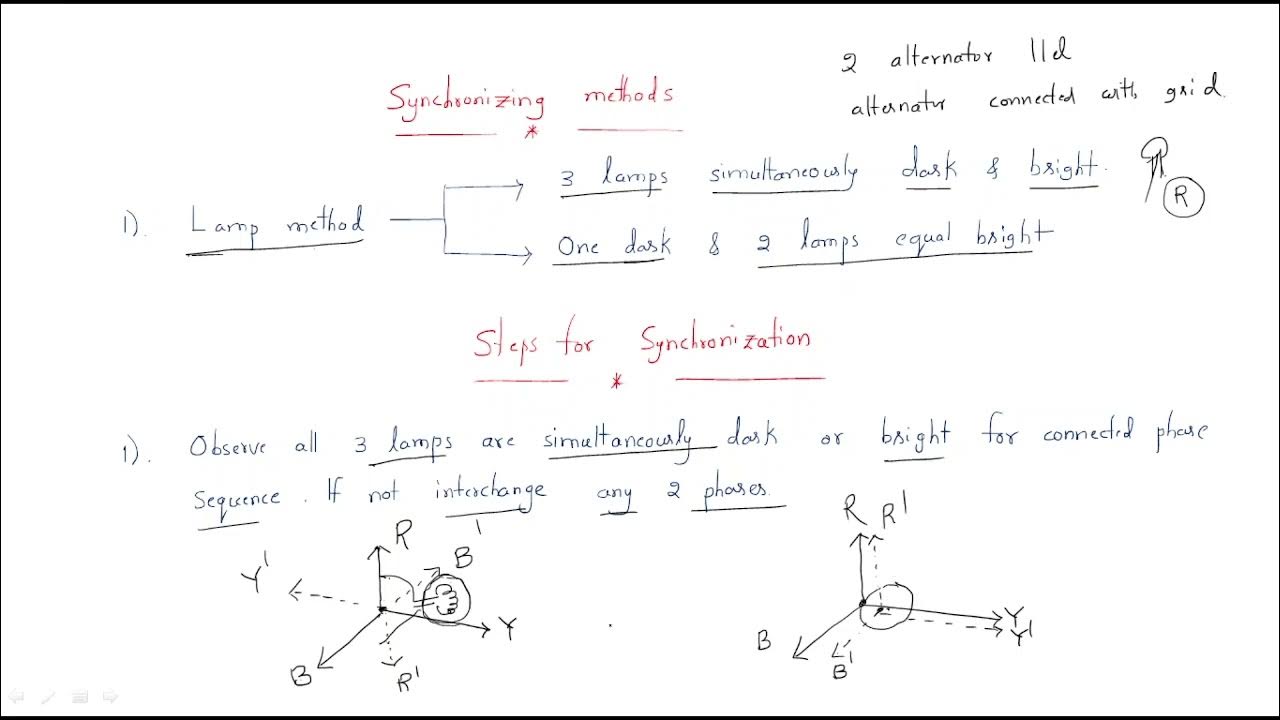 2 alternator ||el
alternatr connected with grid.
Synchronizing methods
*
1). Lamp method
3 lamps simultaneously dask & bright.
R
One dask & 2 lamps equal bright
Steps for Synchronization
*
1). Observe all 3 lamps are simultaneously dask or bright for connected phase
sequence. If not interchange any 2 phases.
R
B'
Y'
Y
B
R'
R R'
Y
Y'
B
B'